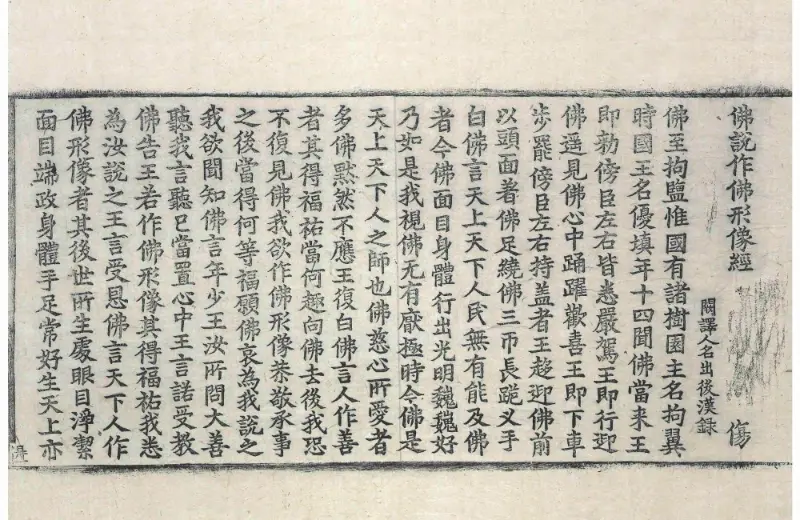 佛說作佛形像經
傷
闕譯人名出後漢錄
佛至拘鹽惟國有諸樹園主名拘翼
時國王名優填年十四聞佛當来王
即勑傍臣左右皆悉嚴駕王即行迎
佛遥見佛心中踊躍歡喜王即下車
步罷傍臣左右持盖者王趍迎佛前
以頭面著佛足繞佛三帀長跪叉手
白佛言天上天下人民無有能及佛
者今佛面目身體行出光明巍巍好
乃如是我視佛无有猒極時今佛是
天上天下人之師也佛慈心所愛者
多佛黙然不應王復白佛言人作善
者其得福祐當何趣向佛去後我恐
不復見佛我欲作佛形像恭敬承事
之後當得何等福願佛哀為我說之
我欲聞知佛言年少王汝所問大善
聽我言聽已當置心中王言諾受教
佛告王若作佛形像其得福祐我悉
為汝說之王言受恩佛言天下人作
佛形像者其後世所生處眼目淨潔
面目端政身體手足常好生天上亦